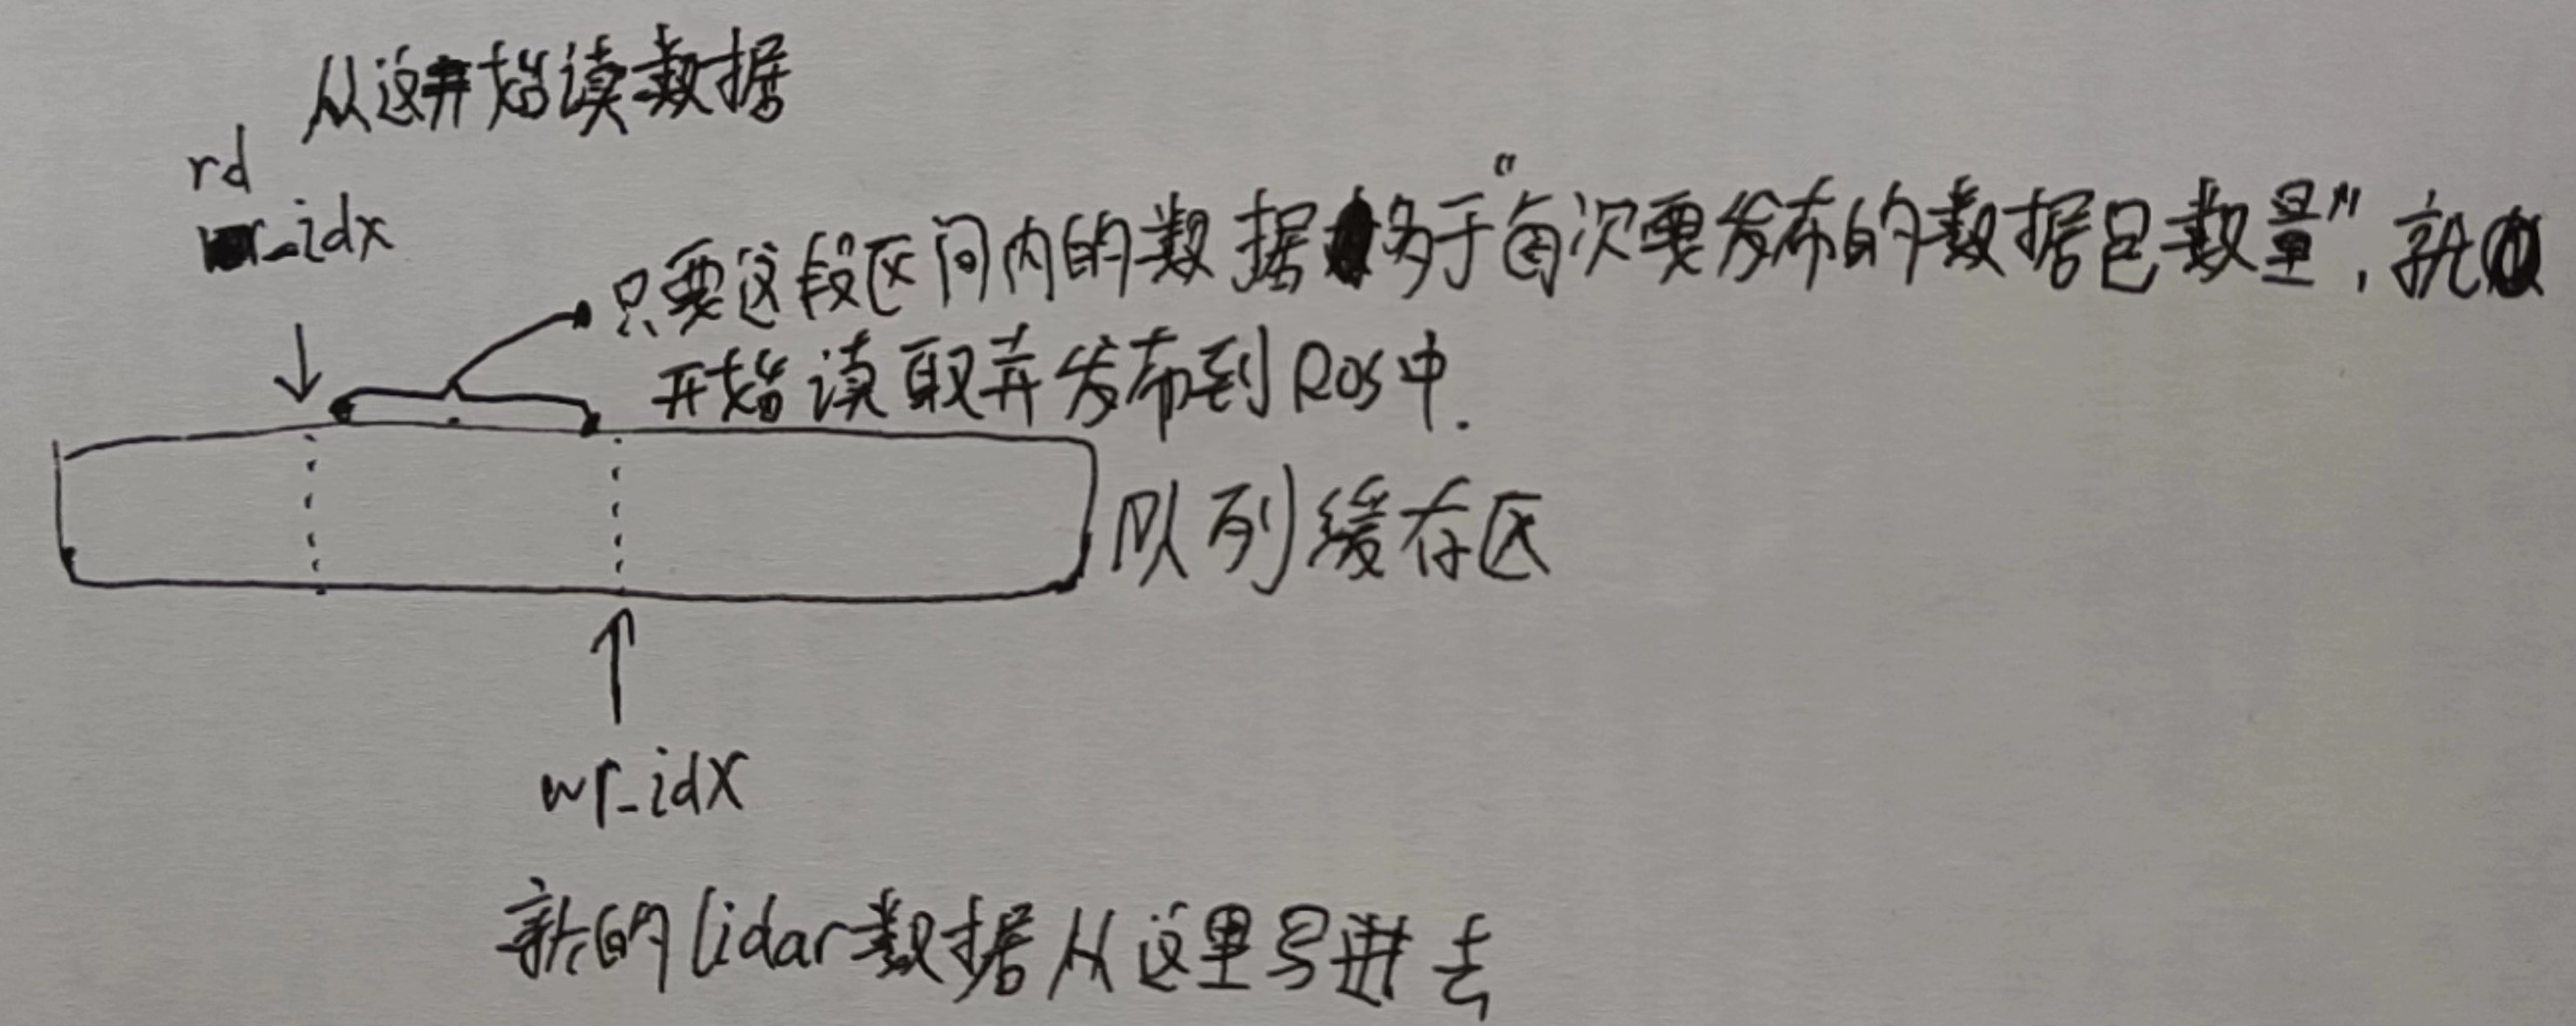 从这开始读数据
rd
r_idx
只要这段区间内的数据多于“每次要发布的数据包数量”,就
开始读取并发布到Ros中.
队列缓存区
wr_idx
新的lidar数据从这里写进去